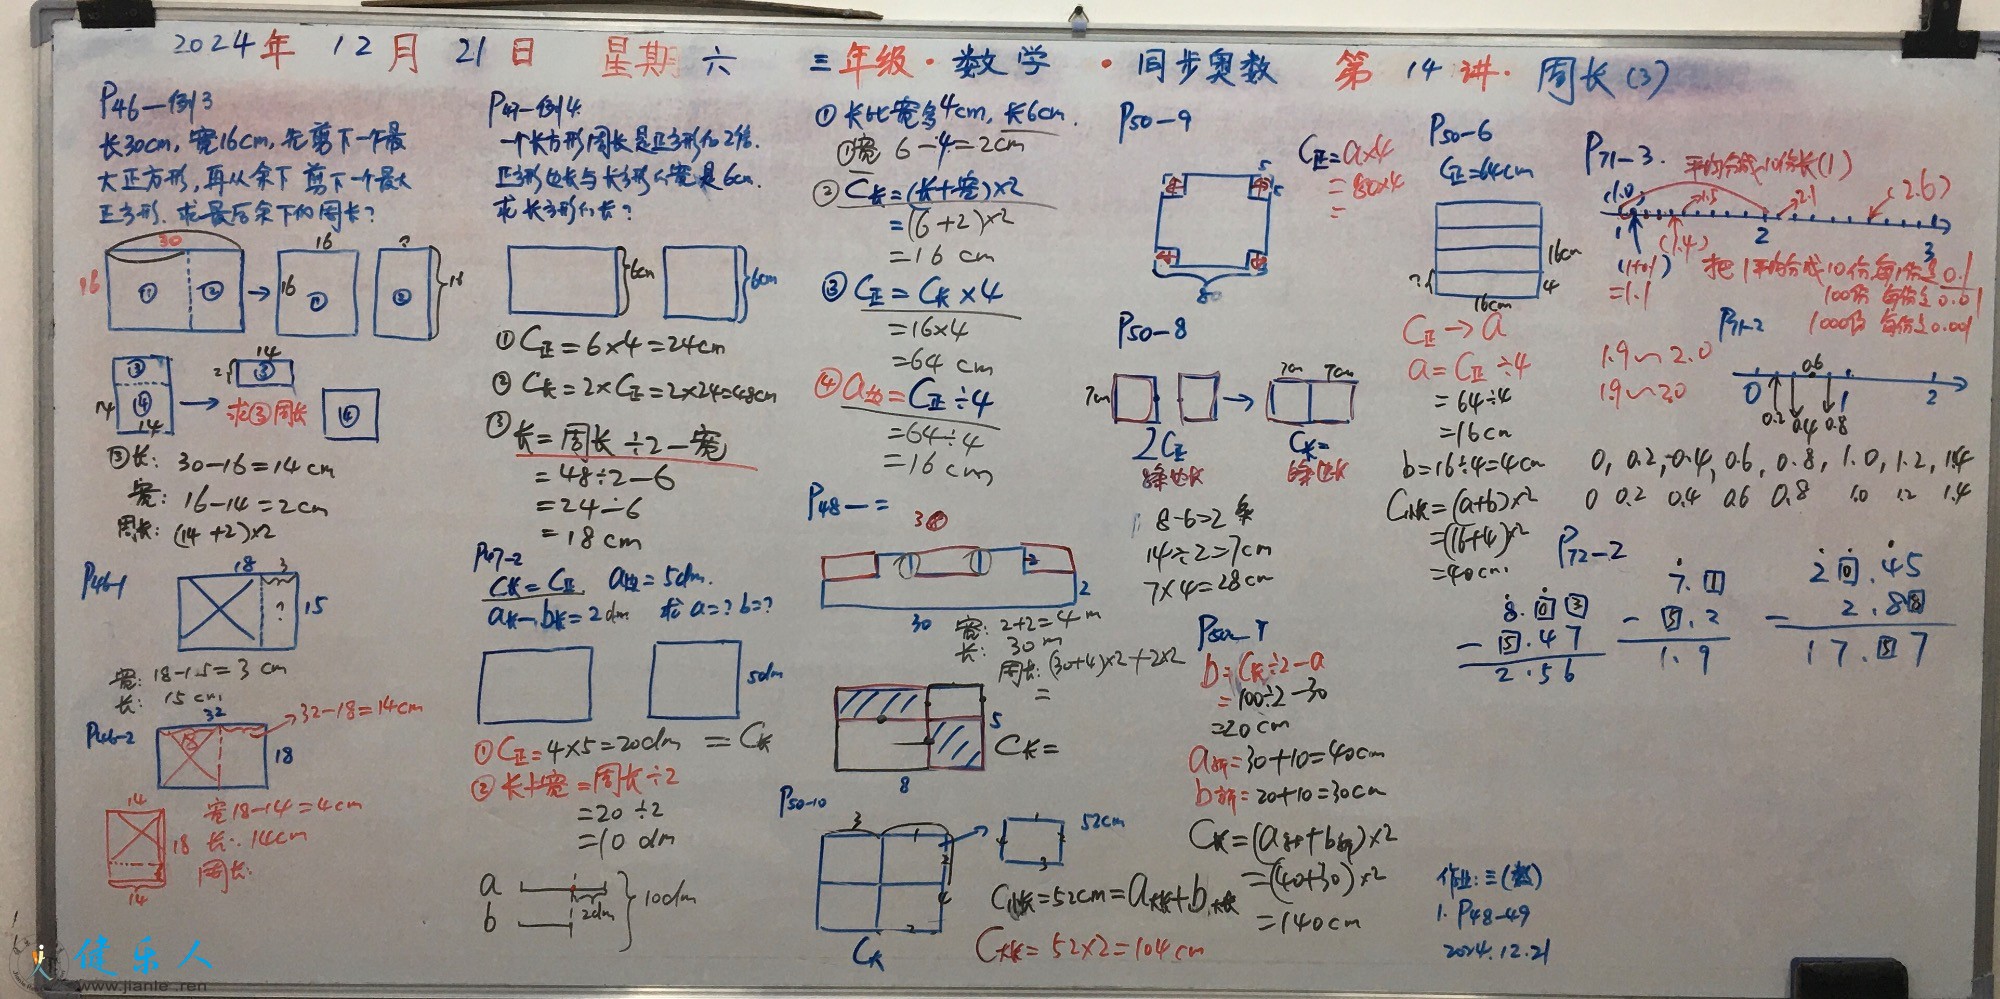 2024年 12月 21日 星期六 三年级·数学·同步奥数 第14讲·周长(3)
P46—例3
长30cm, 宽16cm, 先剪下一个最
大正方形, 再从余下剪下一个最大
正方形. 求最后余下的周长?
30
16
①
②
16
16
①
?
②
16
③
④
14
14
14
2
③
求③周长
④
③长: 30-16=14cm
宽: 16-14=2cm
周长: (14+2)×2
P46-1
18
3
?
15
宽: 18-15=3cm
长: 15cm
P46-2
32
32-18=14cm
18
18
14
18
14
宽18-14=4cm
长: 14cm
周长:
P47-例4
一个长方形周长是正方形的2倍.
正方形边长与长方形的宽是6cm.
求长方形的长?
6cm
6cm
①C正=6×4=24cm
②C长=2×C正=2×24=48cm
③长=周长÷2-宽
=48÷2-6
=24-6
=18cm
P47-2
C长=C正 a边=5dm.
a长-b长=2dm 求a=? b=?
5dm
①C正=4×5=20dm =C长
②长+宽=周长÷2
=20÷2
=10dm
a
b
2dm
10dm
①长比宽多4cm, 长6cm.
①宽 6-4=2cm
②C长=(长+宽)×2
=(6+2)×2
=16cm
③C正=C长×4
=16×4
=64cm
④a边=C正÷4
=64÷4
=16cm
P48-二
30
2
2
30
宽: 2+2=4m
长: 30m
周长: (30+4)×2+2×2
=
5
8
C长=
P50-10
3
1
2
4
2
C大
1
3
52cm
C小长=52cm=a大长+b大长
C大长=52×2=104cm
P50-9
5
5
80
C正=a×4
=80×4
=
P50-8
7cm
7cm
7cm
2C正
C长=
8条边长
6条边长
8-6=2条
14÷2=7cm
7×4=28cm
P50-7
b=C长÷2-a
=100÷2-30
=20cm
a新=30+10=40cm
b新=20+10=30cm
C长=(a新+b新)×2
=(40+30)×2
=140cm
P50-6
C正=64cm
16cm
?
4
16cm
C正→a
a=C正÷4
=64÷4
=16cm
b=16÷4=4cm
C小长=(a+b)×2
=(16+4)×2
=40cm
P71-3.
平均分成10份长(1)
(1.0)
1.5
2.1
(2.6)
1
2
3
(1.4)
(1+0.1)
=1.1
把1平均分成10份每1份是0.1
100份 每份是0.01
1000份 每份是0.001
P71-2
1.9~2.0
1.9~2.0
0.6
0
1
2
0.2
0.4
0.8
0, 0.2, 0.4, 0.6, 0.8, 1.0, 1.2, 1.4
0 0.2 0.4 0.6 0.8 1.0 1.2 1.4
P72-2
8.03
-5.47
2.56
7.1
-5.2
1.9
20.45
-2.88
17.57
作业: 三(数)
1. P48-49
2024.12.21
健乐人
www.jianle.ren